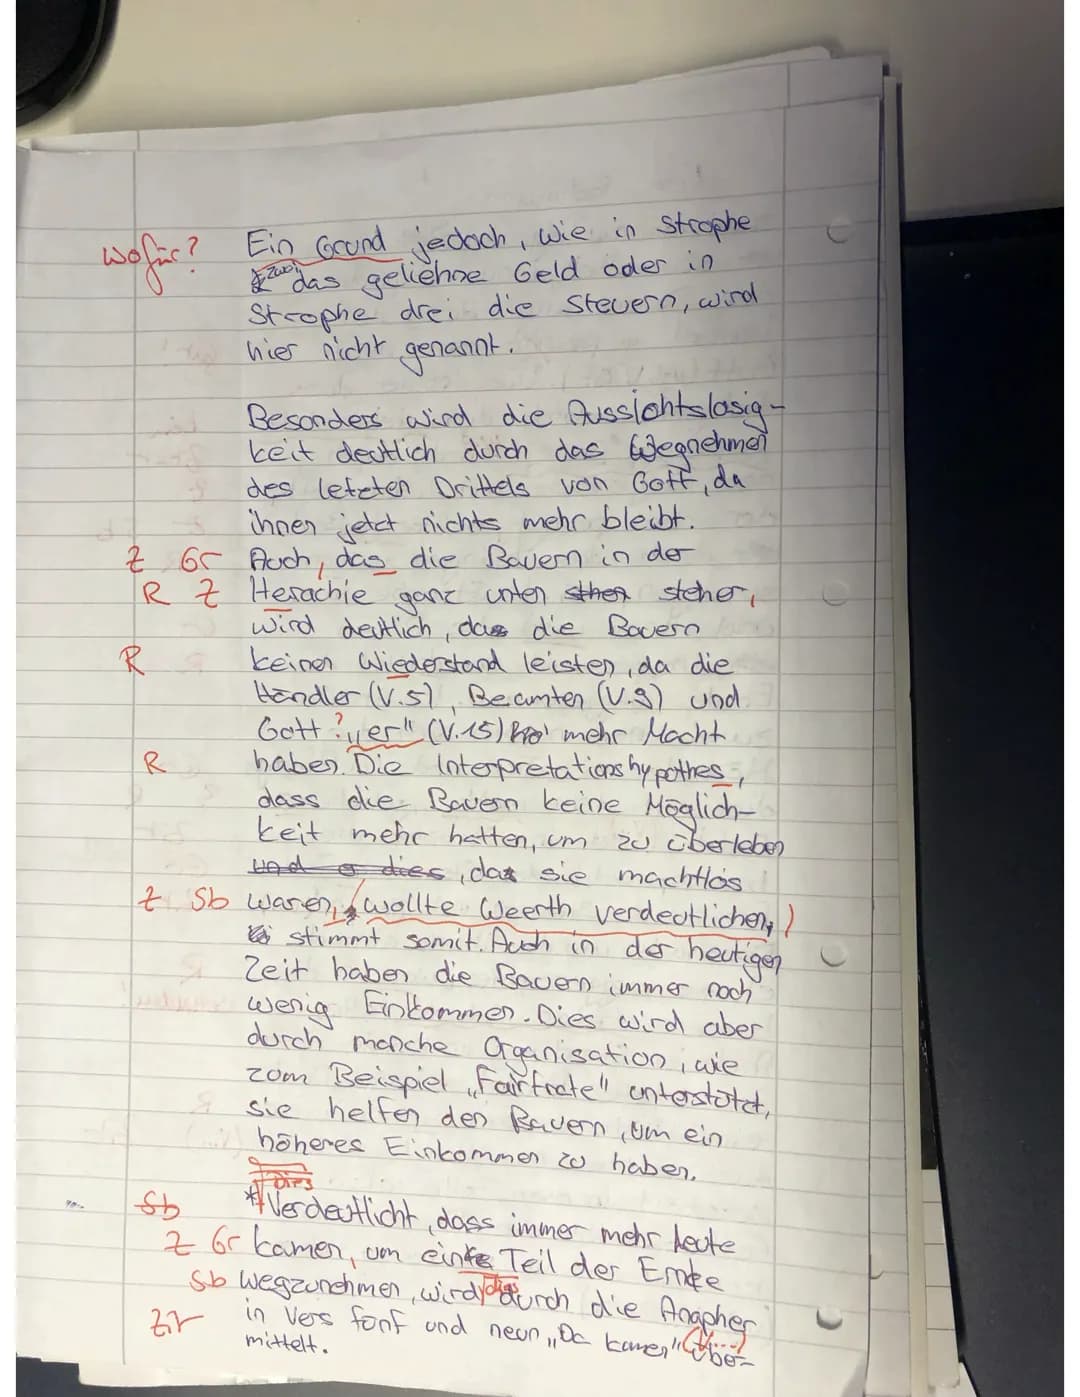 wofür? Ein Grund jedoch, wie in Strophe
zwei das geliehne Geld oder in
Strophe drei die Steuern, wird
hier nicht genannt.
Besonders wird die Aussichtslosig-
keit deutlich durch das Wegnehmen
des letzten Drittels von Gott, da
ihnen jetzt nichts mehr bleibt.
Z Gr Auch, das die Bauern in der
R Z Herachie ganz unten stehen,
wird deutlich, dass die Bauern
R keinen Wiederstand leisten, da die
Händler (V.5), Beamten (V.9) und
Gott ? „er" (V.15) mehr Macht
R haben. Die Interpretationshypothes,
dass die Bauern keine Möglich-
keit mehr hatten, um zu überleben
und dies, das sie machtlos
Z Sb waren, wollte Weerth verdeutlichen,
stimmt somit. Auch in der heutigen
Zeit haben die Bauern immer noch
wenig Einkommen. Dies wird aber
durch manche Organisation, wie
zum Beispiel „Fairtrate" unterstützt,
sie helfen den Bauern, um ein
höheres Einkommen zu haben.
Dies
Sb * Verdeutlicht, dass immer mehr Leute
Z Gr kamen, um einke Teil der Ernte
Sb wegzunehmen, wird dies durch die Anapher
Z,r in Vers fünf und neun „Da kamen" (V....) über-
mittelt.